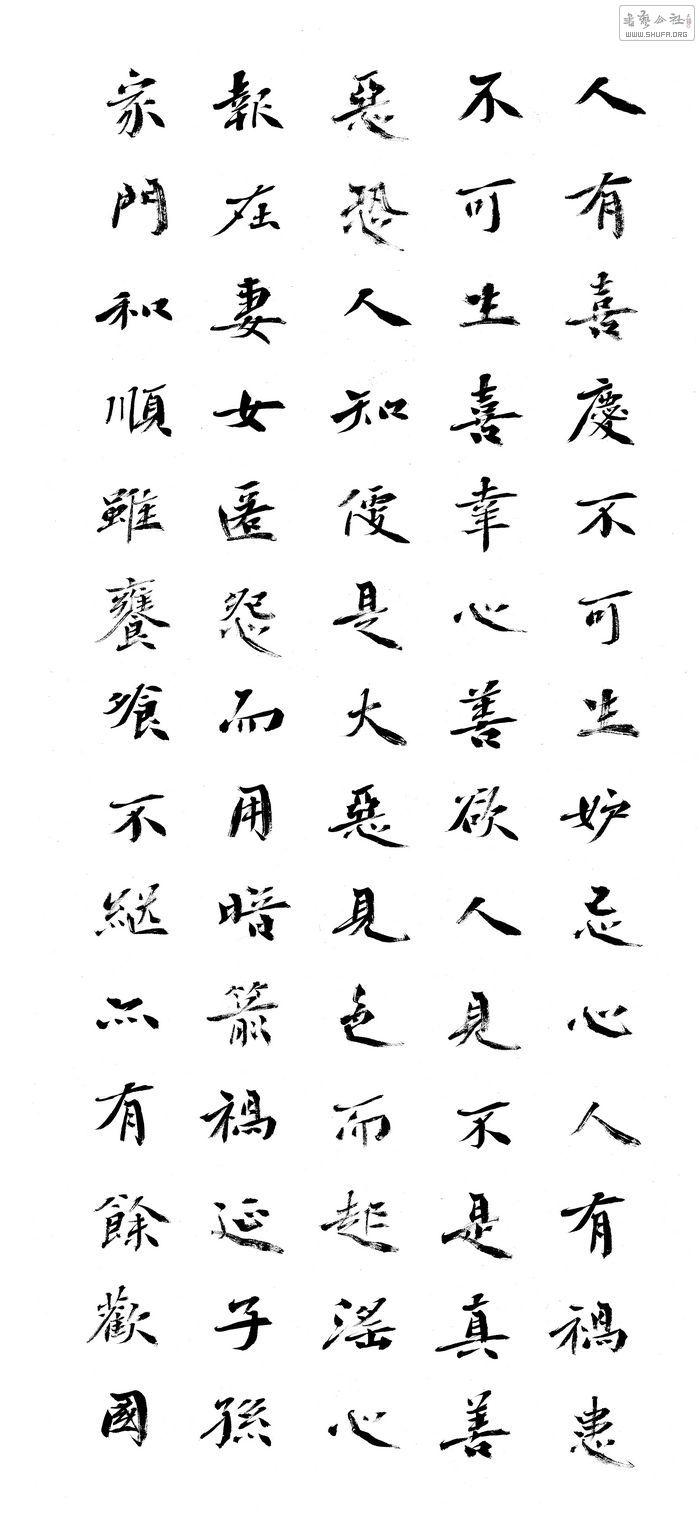 人有喜慶不可生妒忌心人有禍患
不可生喜幸心善欲人見不是真善
惡恐人知便是大惡見色而起淫心
報在妻女匿怨而用暗箭禍延子孫
家門和順雖饔飧不繼亦有餘歡國
書藝公社
WWW.SHUFA.ORG